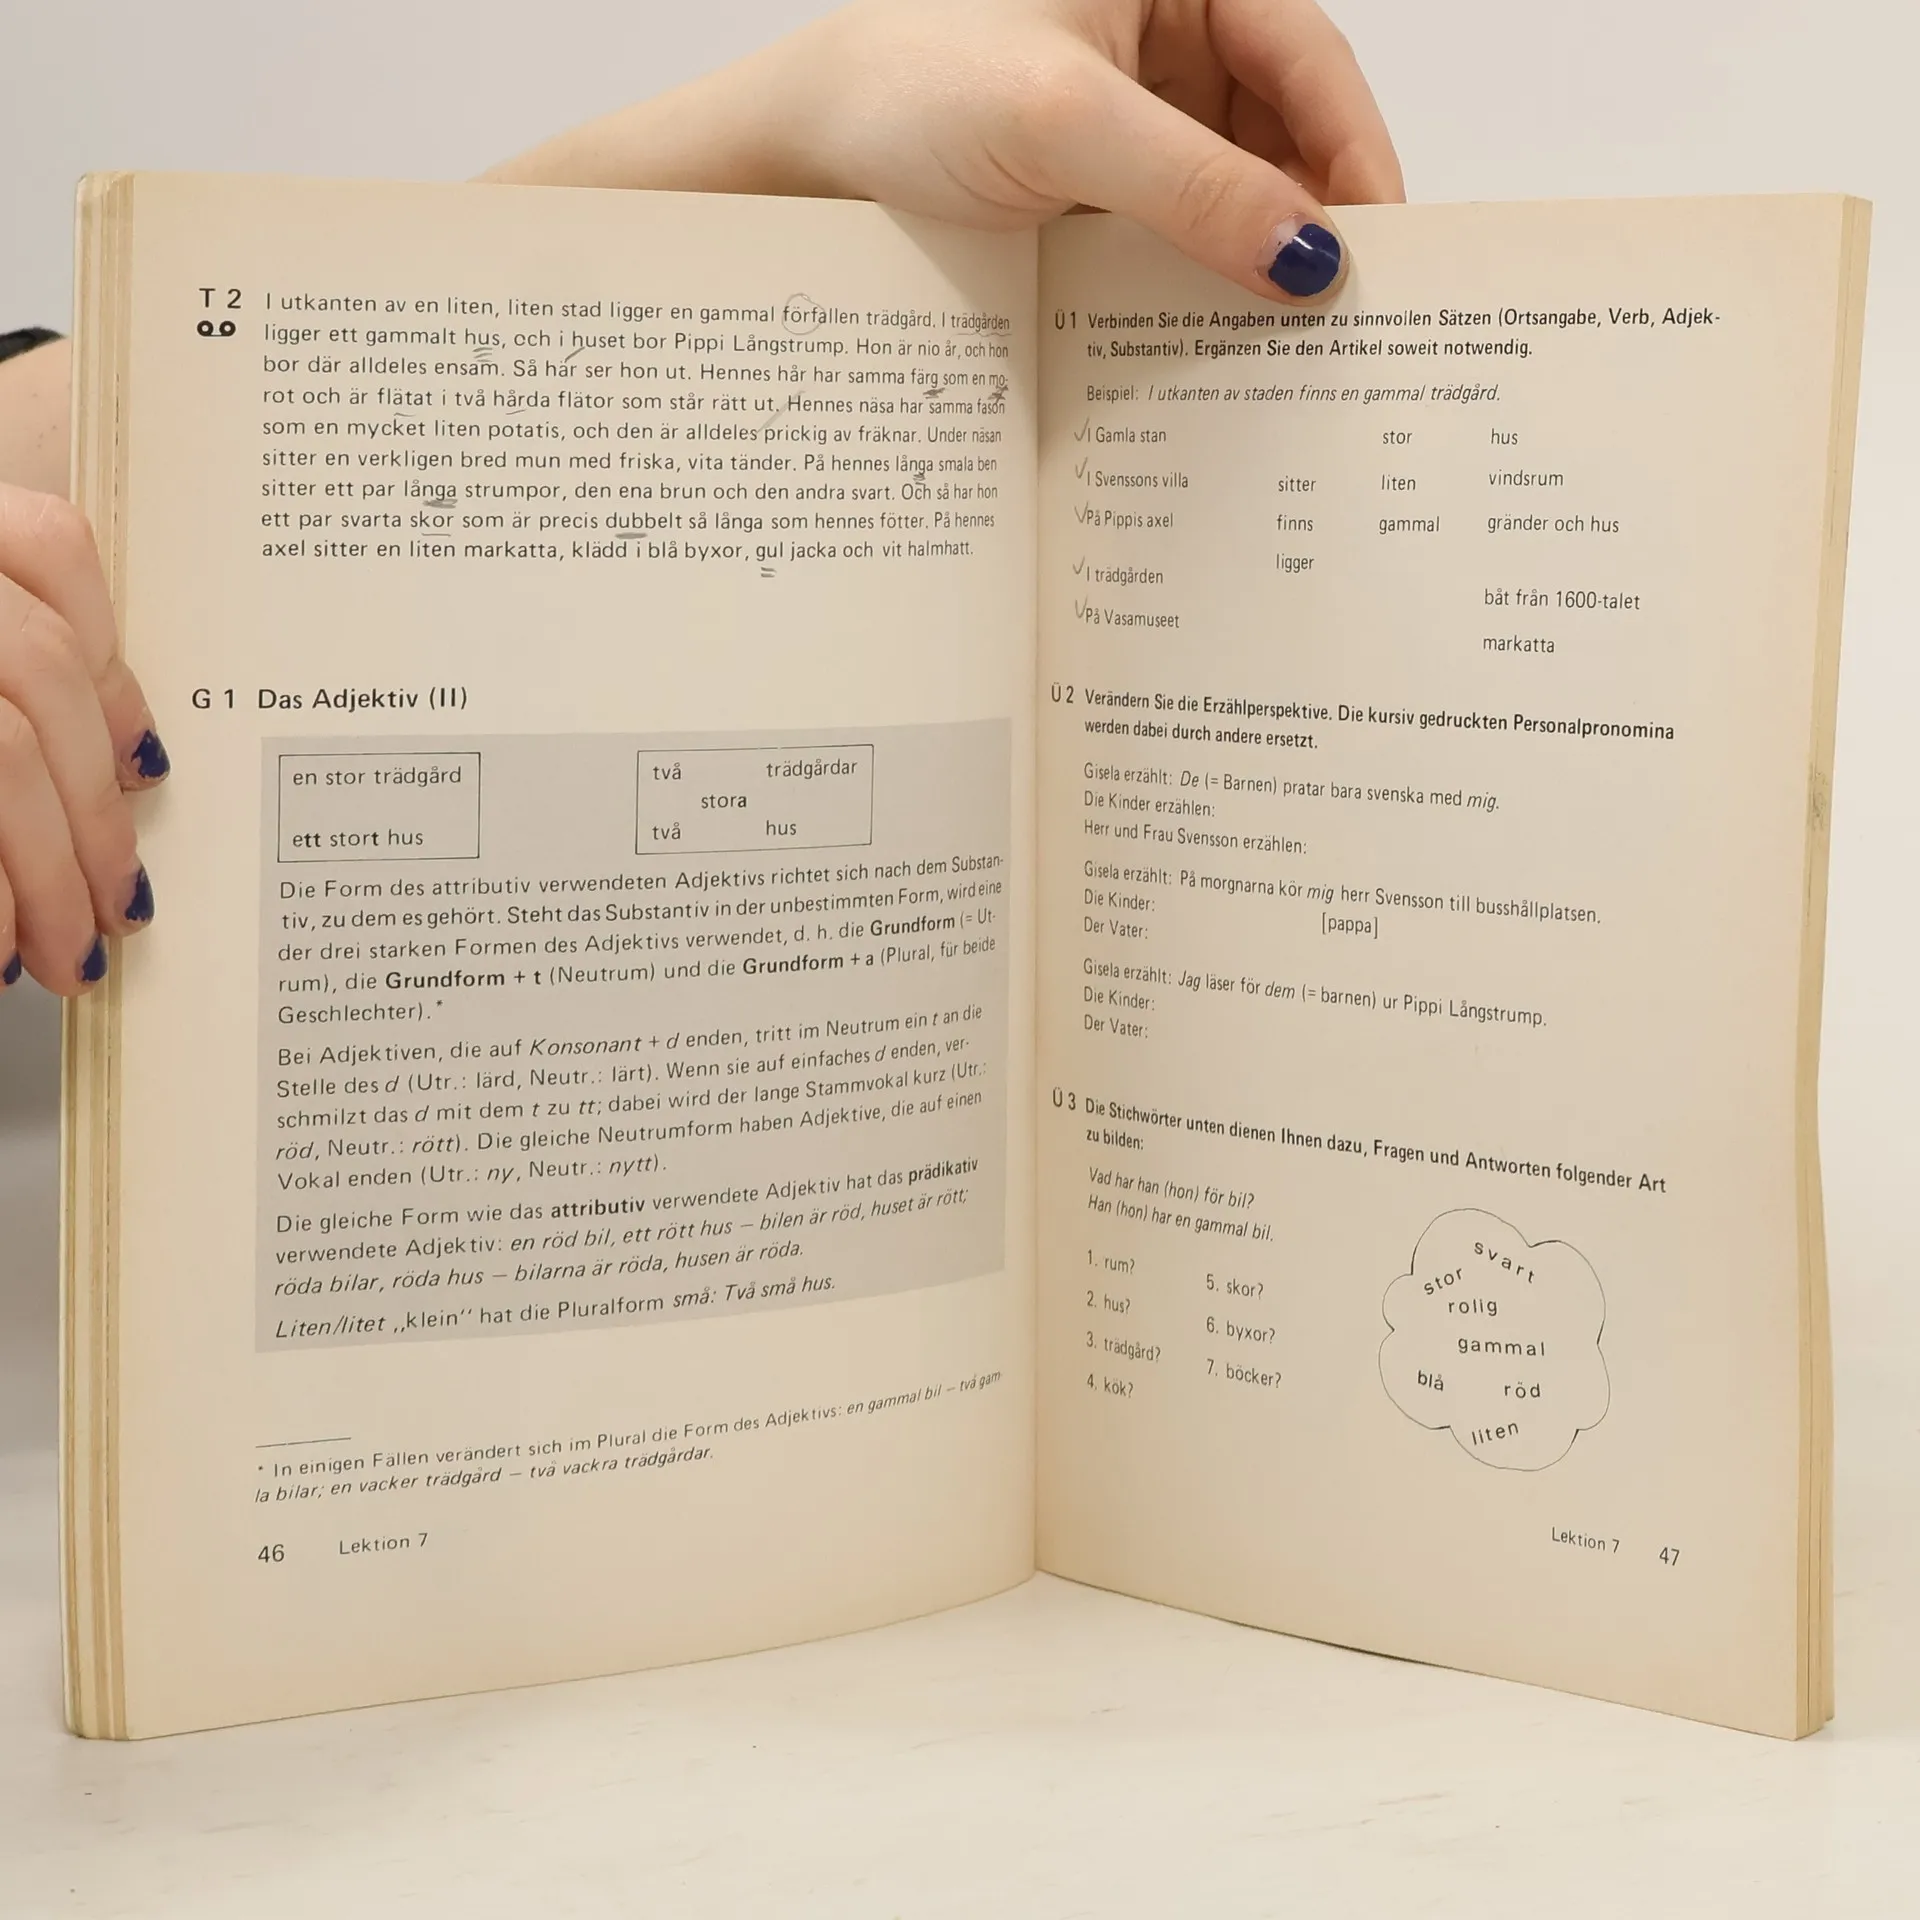 T 2 I utkanten av en liten, liten stad ligger en gammal förfallen trädgård. I trädgården
ligger ett gammalt hus, och i huset bor Pippi Långstrump. Hon är nio år, och hon
bor där alldeles ensam. Så här ser hon ut. Hennes hår har samma färg som en mo-
rot och är flätat i två hårda flätor som står rätt ut. Hennes näsa har samma fason
som en mycket liten potatis, och den är alldeles prickig av fräknar. Under näsan
sitter en verkligen bred mun med friska, vita tänder. På hennes långa smala ben
sitter ett par långa strumpor, den ena brun och den andra svart. Och så har hon
ett par svarta skor som är precis dubbelt så långa som hennes fötter. På hennes
axel sitter en liten markatta, klädd i blå byxor, gul jacka och vit halmhatt.
G 1 Das Adjektiv (II)
en stor trädgård
ett stort hus
två trädgårdar
stora
två hus
Die Form des attributiv verwendeten Adjektivs richtet sich nach dem Substan-
tiv, zu dem es gehört. Steht das Substantiv in der unbestimmten Form, wird eine
der drei starken Formen des Adjektivs verwendet, d. h. die Grundform (= Ut-
rum), die Grundform + t (Neutrum) und die Grundform + a (Plural, für beide
Geschlechter).*
Bei Adjektiven, die auf Konsonant + d enden, tritt im Neutrum ein t an die
Stelle des d (Utr.: lärd, Neutr.: lärt). Wenn sie auf einfaches d enden, ver-
schmilzt das d mit dem t zu tt; dabei wird der lange Stammvokal kurz (Utr.:
röd, Neutr.: rött). Die gleiche Neutrumform haben Adjektive, die auf einen
Vokal enden (Utr.: ny, Neutr.: nytt).
Die gleiche Form wie das attributiv verwendete Adjektiv hat das prädikativ
verwendete Adjektiv: en röd bil, ett rött hus – bilen är röd, huset är rött;
röda bilar, röda hus – bilarna är röda, husen är röda.
Liten/litet „klein‘‘ hat die Pluralform små: Två små hus.
* In einigen Fällen verändert sich im Plural die Form des Adjektivs: en gammal bil – två gam-
la bilar; en vacker trädgård – två vackra trädgårdar.
46 Lektion 7
Ü 1 Verbinden Sie die Angaben unten zu sinnvollen Sätzen (Ortsangabe, Verb, Adjek-
tiv, Substantiv). Ergänzen Sie den Artikel soweit notwendig.
Beispiel: I utkanten av staden finns en gammal trädgård.
I Gamla stan stor hus
I Svenssons villa sitter liten vindsrum
På Pippis axel finns gammal gränder och hus
ligger
I trädgården båt från 1600-talet
På Vasamuseet markatta
Ü 2 Verändern Sie die Erzählperspektive. Die kursiv gedruckten Personalpronomina
werden dabei durch andere ersetzt.
Gisela erzählt: De (= Barnen) pratar bara svenska med mig.
Die Kinder erzählen:
Herr und Frau Svensson erzählen:
Gisela erzählt: På morgnarna kör mig herr Svensson till busshållplatsen.
Die Kinder: [pappa]
Der Vater:
Gisela erzählt: Jag läser för dem (= barnen) ur Pippi Långstrump.
Die Kinder:
Der Vater:
Ü 3 Die Stichwörter unten dienen Ihnen dazu, Fragen und Antworten folgender Art
zu bilden:
Vad har han (hon) för bil?
Han (hon) har en gammal bil.
1. rum?
2. hus?
3. trädgård?
4. kök?
5. skor?
6. byxor?
7. böcker?
svart
stor
rolig
gammal
blå
röd
liten
Lektion 7 47